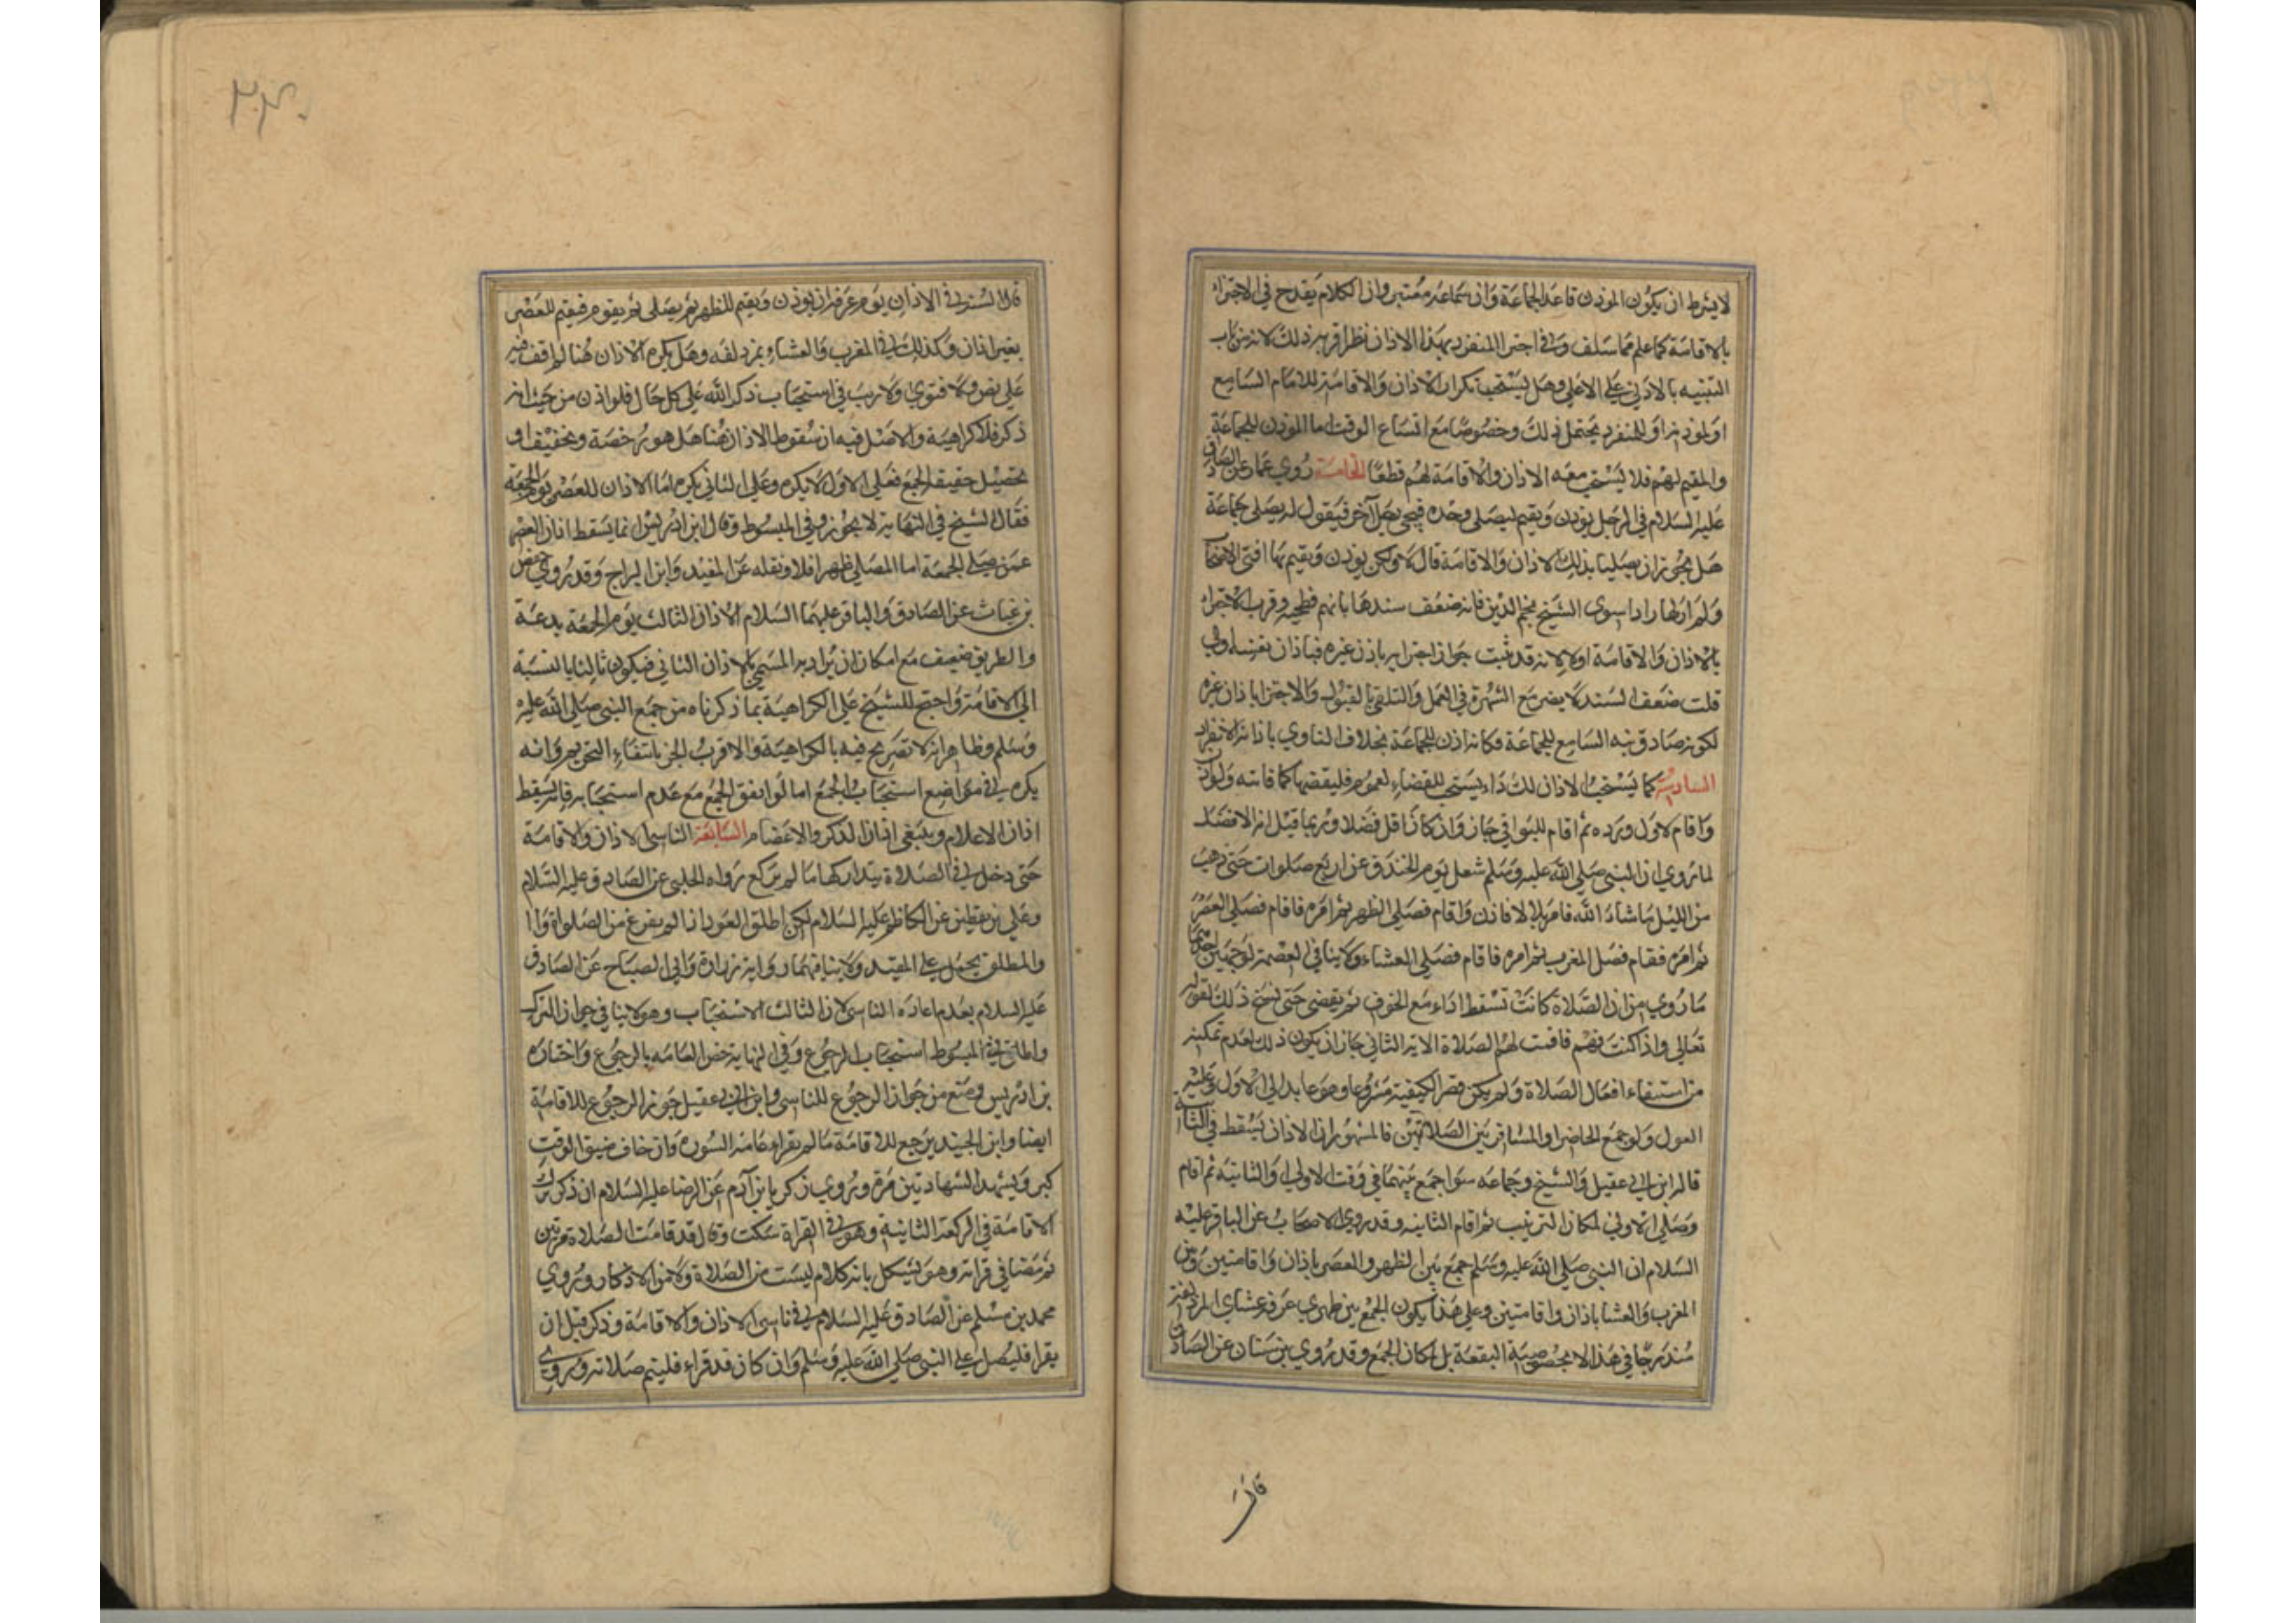 لا يشترط ان يكون الموذن قاصد الجماعة وان سماعه معتبر وان الكلام يقدح في الاجتزاء
بالاقامة كما علم مما سلف وفي اجتزا المنفرد بهذا الاذان نظر اقربه ذلك لانه من باب
التنبيه بالادني علي الاعلي وهل يستحب تكرار الاذان والاقامة للامام السامع
او لموذنه او للمنفرد يحتمل ذلك وخصوصا مع اتساع الوقت اما الموذن للجماعة
والمقيم لهم فلا يستحب معه الاذان والاقامة لهم قطعا الخامسة روي عمار عن الصادق
عليه السلام في الرجل يوذن ويقيم ليصلي وحده فيجي رجل آخر فيقول له يصلي جماعة
هل يجوز ان يصليا بذلك الاذان والاقامة قال لا ولكن يوذن ويقيم بها افتي الاصحاب
ولم ار لها رادا سوى الشيخ نجم الدين فانه ضعف سندها بانهم فطحيه وقرب الاجتزاء
بالاذان والاقامة اولا لانه قد ثبت جواز اجتزايه باذن غيره فباذان نفسه اولي
قلت ضعف السند لا يضر مع الشهرة في العمل والتلقي بالقبول والاجتزا باذان غيره
لكونه صادق نيه السامع للجماعة فكانه اذن للجماعة بخلاف الناوي باذانه الانفراد
السادسة كما يستحب الاذان للاداء يستحب للقضاء لعموم فليقضها كما فاتته ولو اذن
واقام لاول ورده ثم اقام للبواقي جاز وان كان اقل فضلا وربما قيل انه الافضل
لما روي ان النبي صلي الله عليه وسلم شغل يوم الخندق عن اربع صلوات حتي ذهب
من الليل ما شاء الله فامر بلالا فاذن واقام فصلي الظهر ثم امره فاقام فصلي العصر
ثم امره فقام فصل المغرب ثم امره فاقام فصلي العشاء ولا ينافي العصمة لوجهين احدهما
ما روي من ان الصلاة كانت تسقط اداء مع الخوف ثم يقضي حتي نسخ ذلك لقوله
تعالي واذا كنت فيهم فاقمت لهم الصلاة الاية الثاني جاز ان يكون ذلك لعدم تمكنه
من استيفاء افعال الصلاة ولم يكن قصر الكيفية مشروعا وهو عايد الي الاول وعليه
العول ولو جمع الحاضر او المسافر بين الصلاتين فالمشهور ان الاذان يسقط في الثانية
قاله ابن ابي عقيل والشيخ وجماعه سوا جمع بينهما في وقت الاولي او الثانية ثم اقام
وصلي الاولي لمكان الترتيب ثم اقام الثانيه وقد روي الاصحاب عن الباقر عليه
السلام ان النبي صلي الله عليه وسلم جمع بين الظهر والعصر باذان واقامتين وبين
المغرب والعشا باذان واقامتين وعلي هذا يكون الجمع بين ظهري عرفه وعشاي المزدلفة
مندرجا في هذا لا بخصوصية البقعة بل لمكان الجمع وقد روي بن سنان عن الصادق
قال
۲۳۰
قال السنه في الاذان يوم عرفه ان يوذن ويقيم للظهر ثم يصلي ثم يقوم فيقيم للعصر
بغير اذان وكذلك في المغرب والعشاء بمزدلفه وهل يكره الاذان هنا لم اقف فيه
علي نص ولا فتوي ولا ريب في استحباب ذكر الله علي كل حال فلو اذن من حيث انه
ذكر فلا كراهية والاصل فيه ان سقوط الاذان هنا هل هو رخصة وتخفيف او
تحصيل حقيقة الجمع فعلي الاول لا يكره وعلي الثاني يكره اما الاذان للعصر يوم الجمعة
فقال الشيخ في النهاية لا يجوز وفي المبسوط وقال ابن ادريس انما يسقط اذان العصر
عمن صلي الجمعة اما المصلي ظهرا فلا ونقله عن المفيد وابن البراج وقد روي حفص
بن غياث عن الصادق والباقر عليهما السلام الاذان الثالث يوم الجمعة بدعة
والطريق ضعيف مع امكان ان يراد به المسمي بالاذان الثاني فيكون ثالثا بالنسبة
الي الاقامة واحتج للشيخ علي الكراهية بما ذكرناه من جمع النبي صلي الله عليه
وسلم وظاهر انه لا تصريح فيه بالكراهية والاقرب الجزم بانتفاء التحريم وانه
يكره في مواضع استحباب الجمع اما لو اتفق الجمع مع عدم استحبابه فانه يسقط
اذان الاعلام ويبقي اذان الذكر والاعضام السابعة الناسي الاذان والاقامة
حتي دخل في الصلاة يتداركها ما لم يركع رواه الحلبي عن الصادق عليه السلام
وعلي بن يقطين عن الكاظم عليه السلام لكن اطلق العود اذا لم يفرغ من الصلواة وا
والمطلق يحمل علي المقيد ولا ينافيهما روايه زرارة وابي الصباح عن الصادق
عليه السلام بعدم اعاده الناسي لان الثالث الاستحباب وهو لا ينافي جواز الترك
واطلق في المبسوط استحباب الرجوع وفي النهاية خص العامه بالرجوع واختاره
بن ادريس ومنع من جواز الرجوع للناسي وابن ابي عقيل جوز الرجوع للاقامة
ايضا وابن الجنيد يرجع للاقامة ما لم يقراء عامة السورة وان خاف ضيق الوقت
كبر ويشهد الشهادتين مرة وروي زكريا بن آدم عن الرضا عليه السلام ان ذكر ترك
الاقامة في الركعة الثانية وهو في القراة سكت وقال قد قامت الصلاة مرتين
ثم مضا في قراته وهو يشكل بانه كلام ليست من الصلاة ولا من الاذكار وروي
محمد بن مسلم عن الصادق عليه السلام في ناسي الاذان والاقامة وذكر قبل ان
يقرا فليصل علي النبي صلي الله عليه وسلم وان كان قد قراء فليتم صلاته وروي